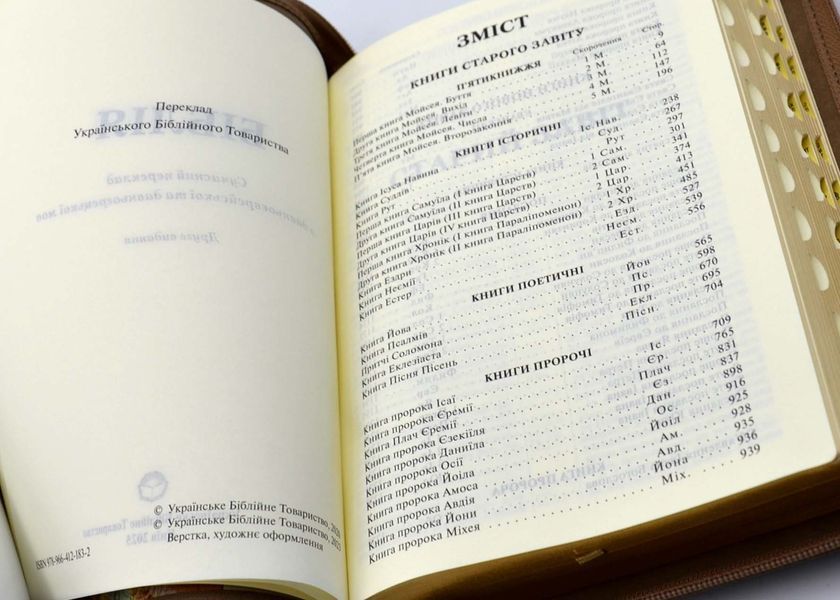 Переклад
Українського Біблійного Товариства
© Українське Біблійне Товариство,
© Українське Біблійне Товариство,
Верстка, художнє оформлення
ISBN 978-966-412-183-2
ЗМІСТ
КНИГИ СТАРОГО ЗАВІТУ
Скорочення Стор.
П'ЯТИКНИЖЖЯ
Перша книга Мойсея. Буття 1 М. 9
Друга книга Мойсея. Вихід 2 М. 64
Третя книга Мойсея. Левіти 3 М. 112
Четверта книга Мойсея. Числа 4 М. 147
П'ята книга Мойсея. Второзаконня 5 М. 196
КНИГИ ІСТОРИЧНІ
Книга Ісуса Навина Іс Нав. 238
Книга Суддів Суд. 267
Книга Рут Рут 297
Перша книга Самуїла (І книга Царств) 1 Сам. 301
Друга книга Самуїла (ІІ книга Царств) 2 Сам. 341
Перша книга Царів (ІІІ книга Царств) 1 Цар. 374
Друга книга Царів (IV книга Царств) 2 Цар. 413
Перша книга Хронік (І книга Параліпоменон) 1 Хр. 451
Друга книга Хронік (ІІ книга Параліпоменон) 2 Хр. 485
Книга Ездри Езд. 527
Книга Неємії Неєм. 539
Книга Естер Ест. 556
КНИГИ ПОЕТИЧНІ
Книга Йова Йов 565
Книга Псалмів Пс. 598
Притчі Соломона Пр. 670
Книга Еклезіаста Екл. 695
Книга Пісня Пісень Пісн. 704
КНИГИ ПРОРОЧІ
Книга пророка Ісаї Іс. 709
Книга пророка Єремії Єр. 765
Книга Плач Єремії Плач 831
Книга пророка Єзекіїля Єз. 837
Книга пророка Даниїла Дан. 898
Книга пророка Осії Ос. 916
Книга пророка Йоіла Йоіл 925
Книга пророка Амоса Ам. 928
Книга пророка Авдія Авд. 935
Книга пророка Йони Йона 936
Книга пророка Міхея Міх. 939